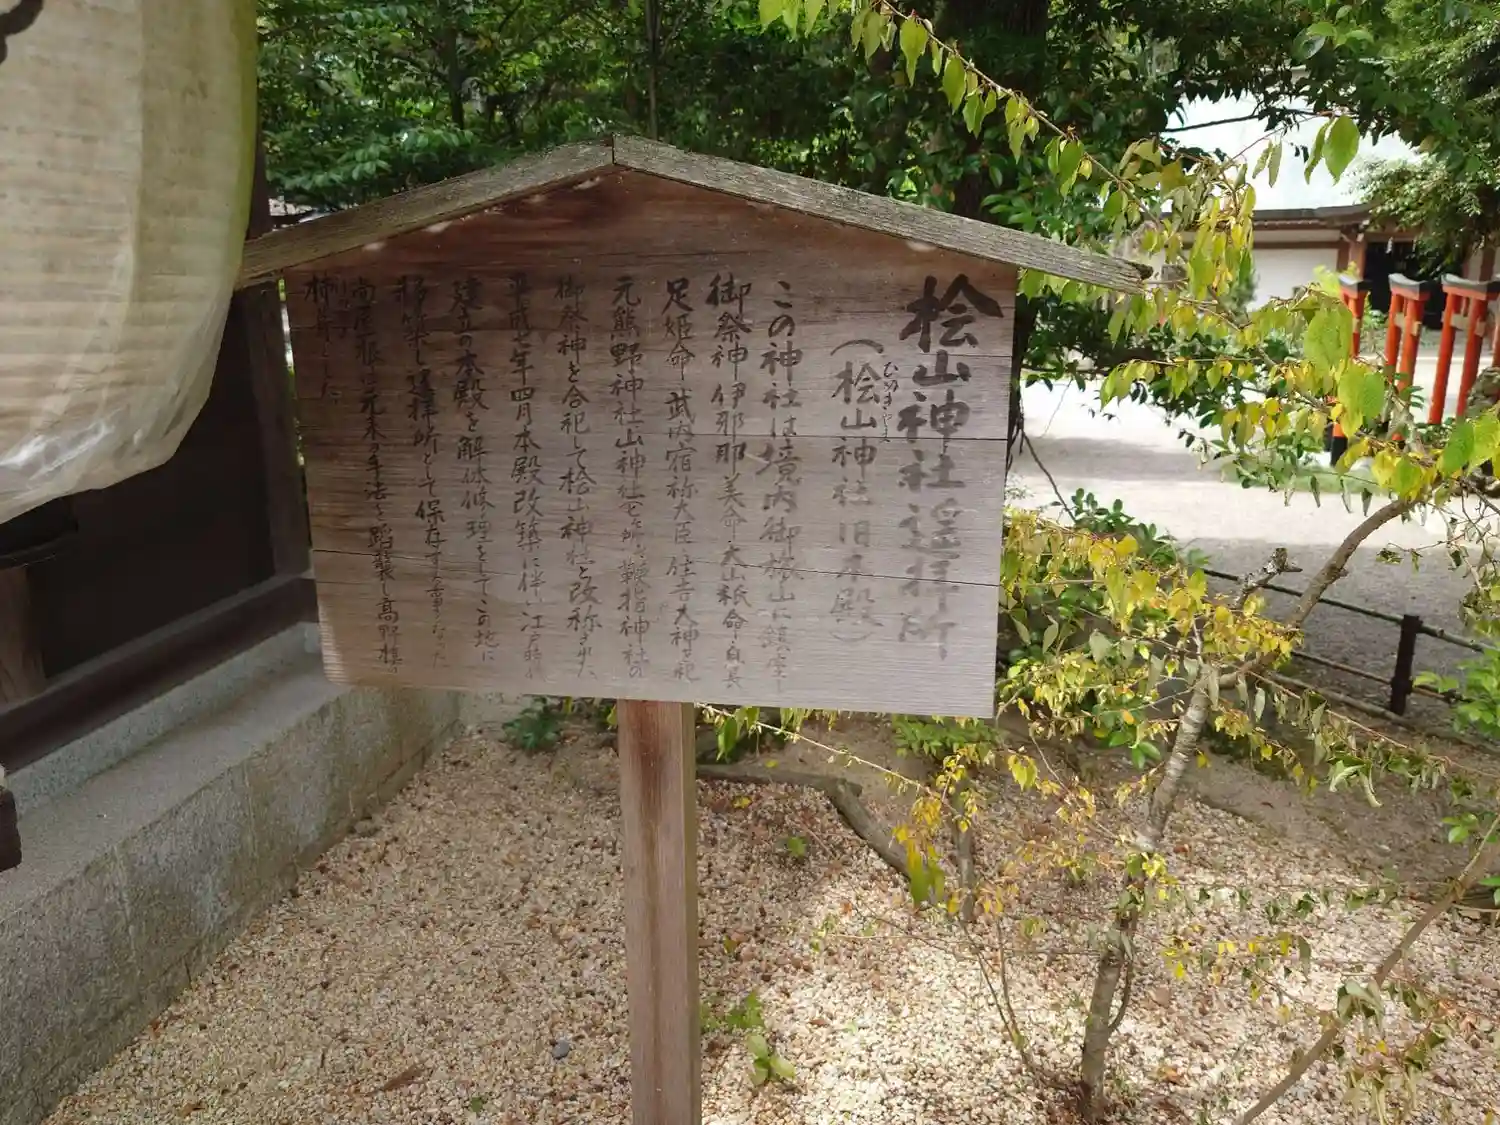 桧山神社遥拝所
（桧山神社旧本殿）
この神社は境内御旅山に鎮座し
御祭神 伊邪那美命 大山祇命
足姫命 武内宿祢大臣 住吉大神
元熊野神社山神社 鞍指神社の
御祭神を合祀して桧山神社と改称
平成七年四月本殿改築に伴い江戸時代
建立の本殿を解体修理をしてこの地に
移築し遥拝所として保存する事になった
尚屋根は元来の手法を踏襲し高野槙の
柿葺とした